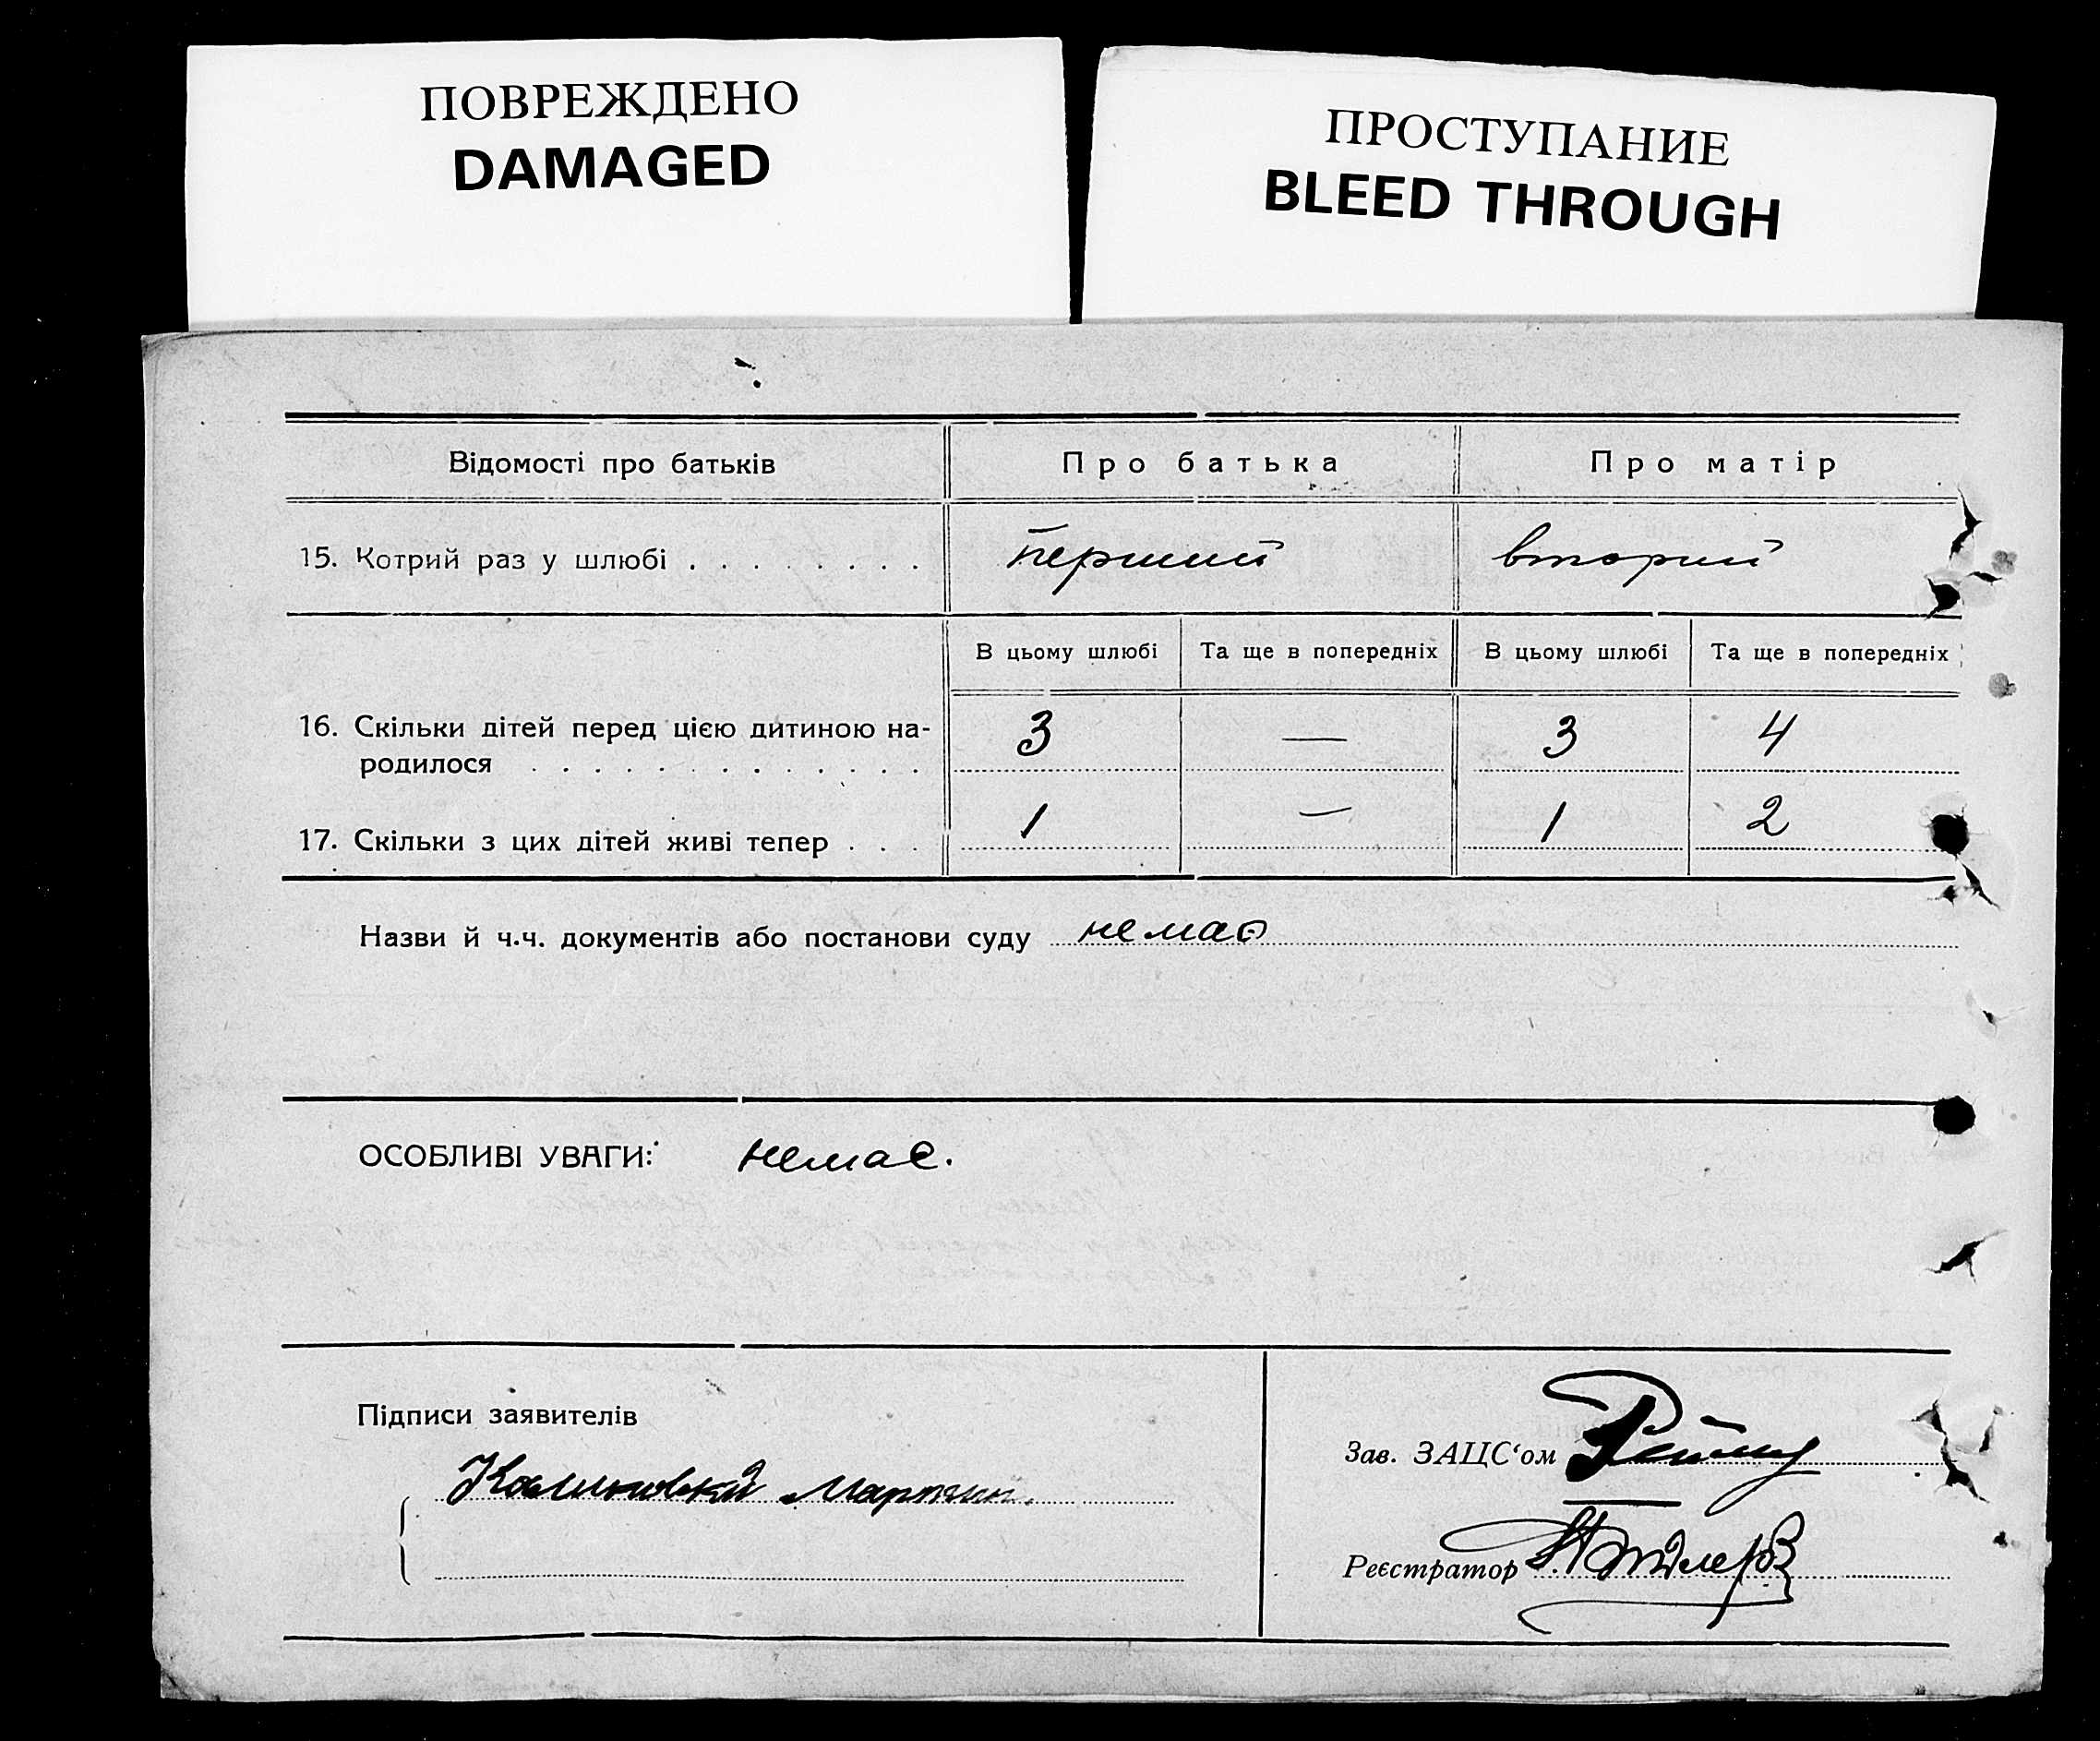 ПОВРЕЖДЕНО
DAMAGED
ПРОСТУПАНИЕ
BLEED THROUGH
Відомості про батьків
Про батька
Про матір
15. Котрий раз у шлюбі . . . . . . . .
перший
вторий
В цьому шлюбі
Та ще в попередніх
В цьому шлюбі
Та ще в попередніх
16. Скільки дітей перед цією дитиною на-
родилося . . . . . . . . . . . . .
3
—
3
4
17. Скільки з цих дітей живі тепер . . .
1
—
1
2
Назви й ч.ч. документів або постанови суду немає
ОСОБЛИВІ УВАГИ: немає.
Підписи заявителів
Калиновский Мартин
Зав. ЗАЦС‘ом
Реєстратор